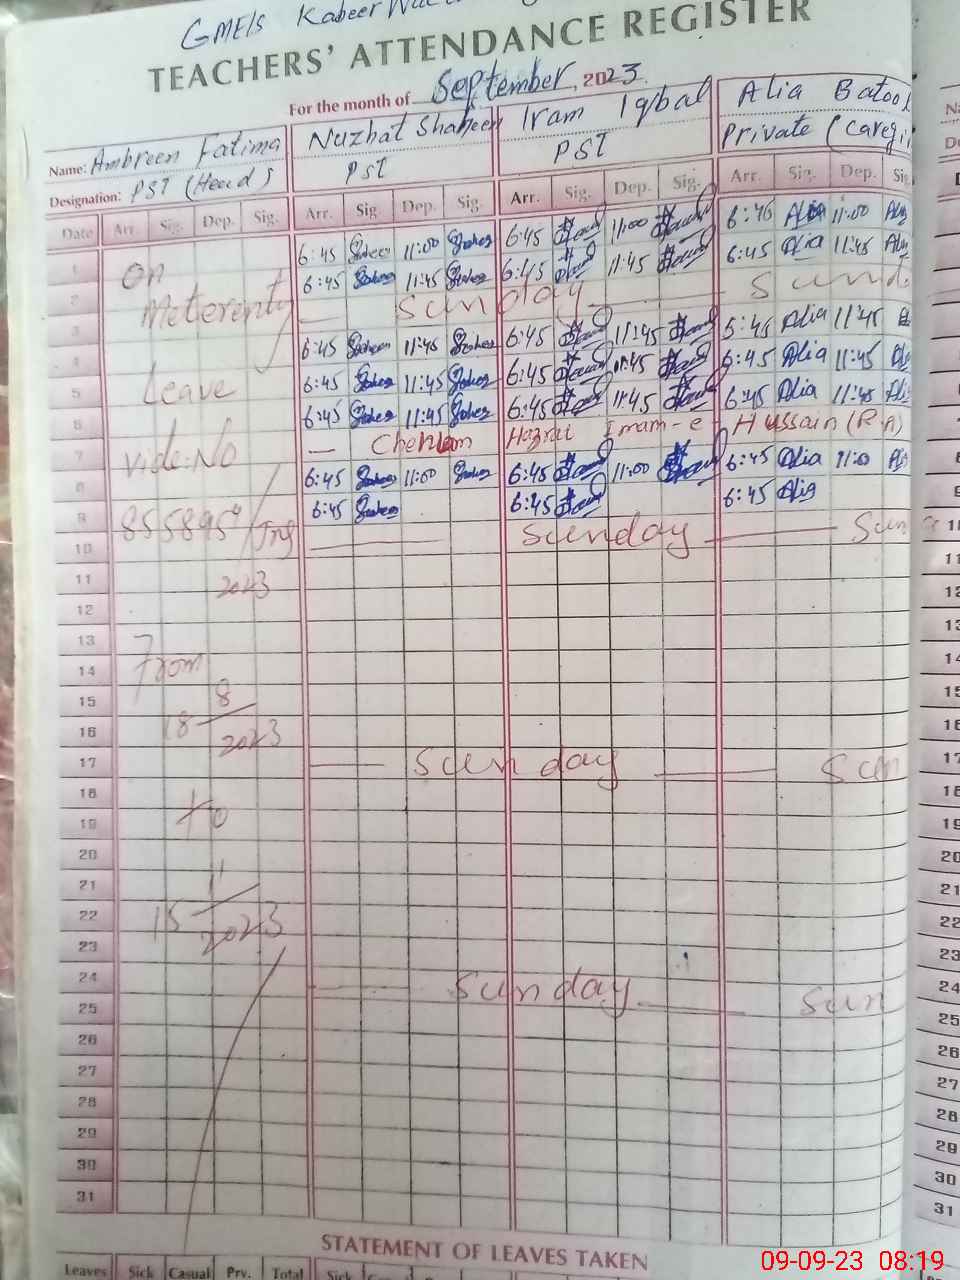 GMEIS Kabeer
TEACHERS' ATTENDANCE REGISTER
For the month of September, 2023
Name: Ambreen Fatima Nuzhat Shaheen Iram Iqbal Alia Batool
Designation: PST (Head) PST PST Private (Caregi
Date Arr. Sig. Dep. Sig. Arr. Sig. Dep. Sig. Arr. Sig. Dep. Sig. Arr. Sig. Dep. Sig
1 On 6:45 11:00 6:45 11:00 6:46 Alia 11:00
2 Meterenty 6:45 11:45 6:45 11:45 6:45 Alia 11:45
3 Sunday Sund
4 6:45 11:45 6:45 11:45 6:45 Alia 11:45
5 Leave 6:45 11:45 6:45 11:45 6:45 Alia 11:45
6 6:45 11:45 6:45 11:45 6:45 Alia 11:45
7 Vide: No Chehlum Hazrat Imam-e Hussain (R.A)
8 6:45 11:00 6:45 11:00 6:45 Alia 11:00
9 6:45 6:45 6:45 Alia
10 Sunday Sun
11 2023
12
13
14 From
15 8
16 18 2023
17 Sunday Sun
18
19 to
20
21 11
22 15 2023
23
24 Sunday Sun
25
26
27
28
29
30
31
STATEMENT OF LEAVES TAKEN
Leaves Sick Casual Prv. Total Sick
09-09-23 08:19